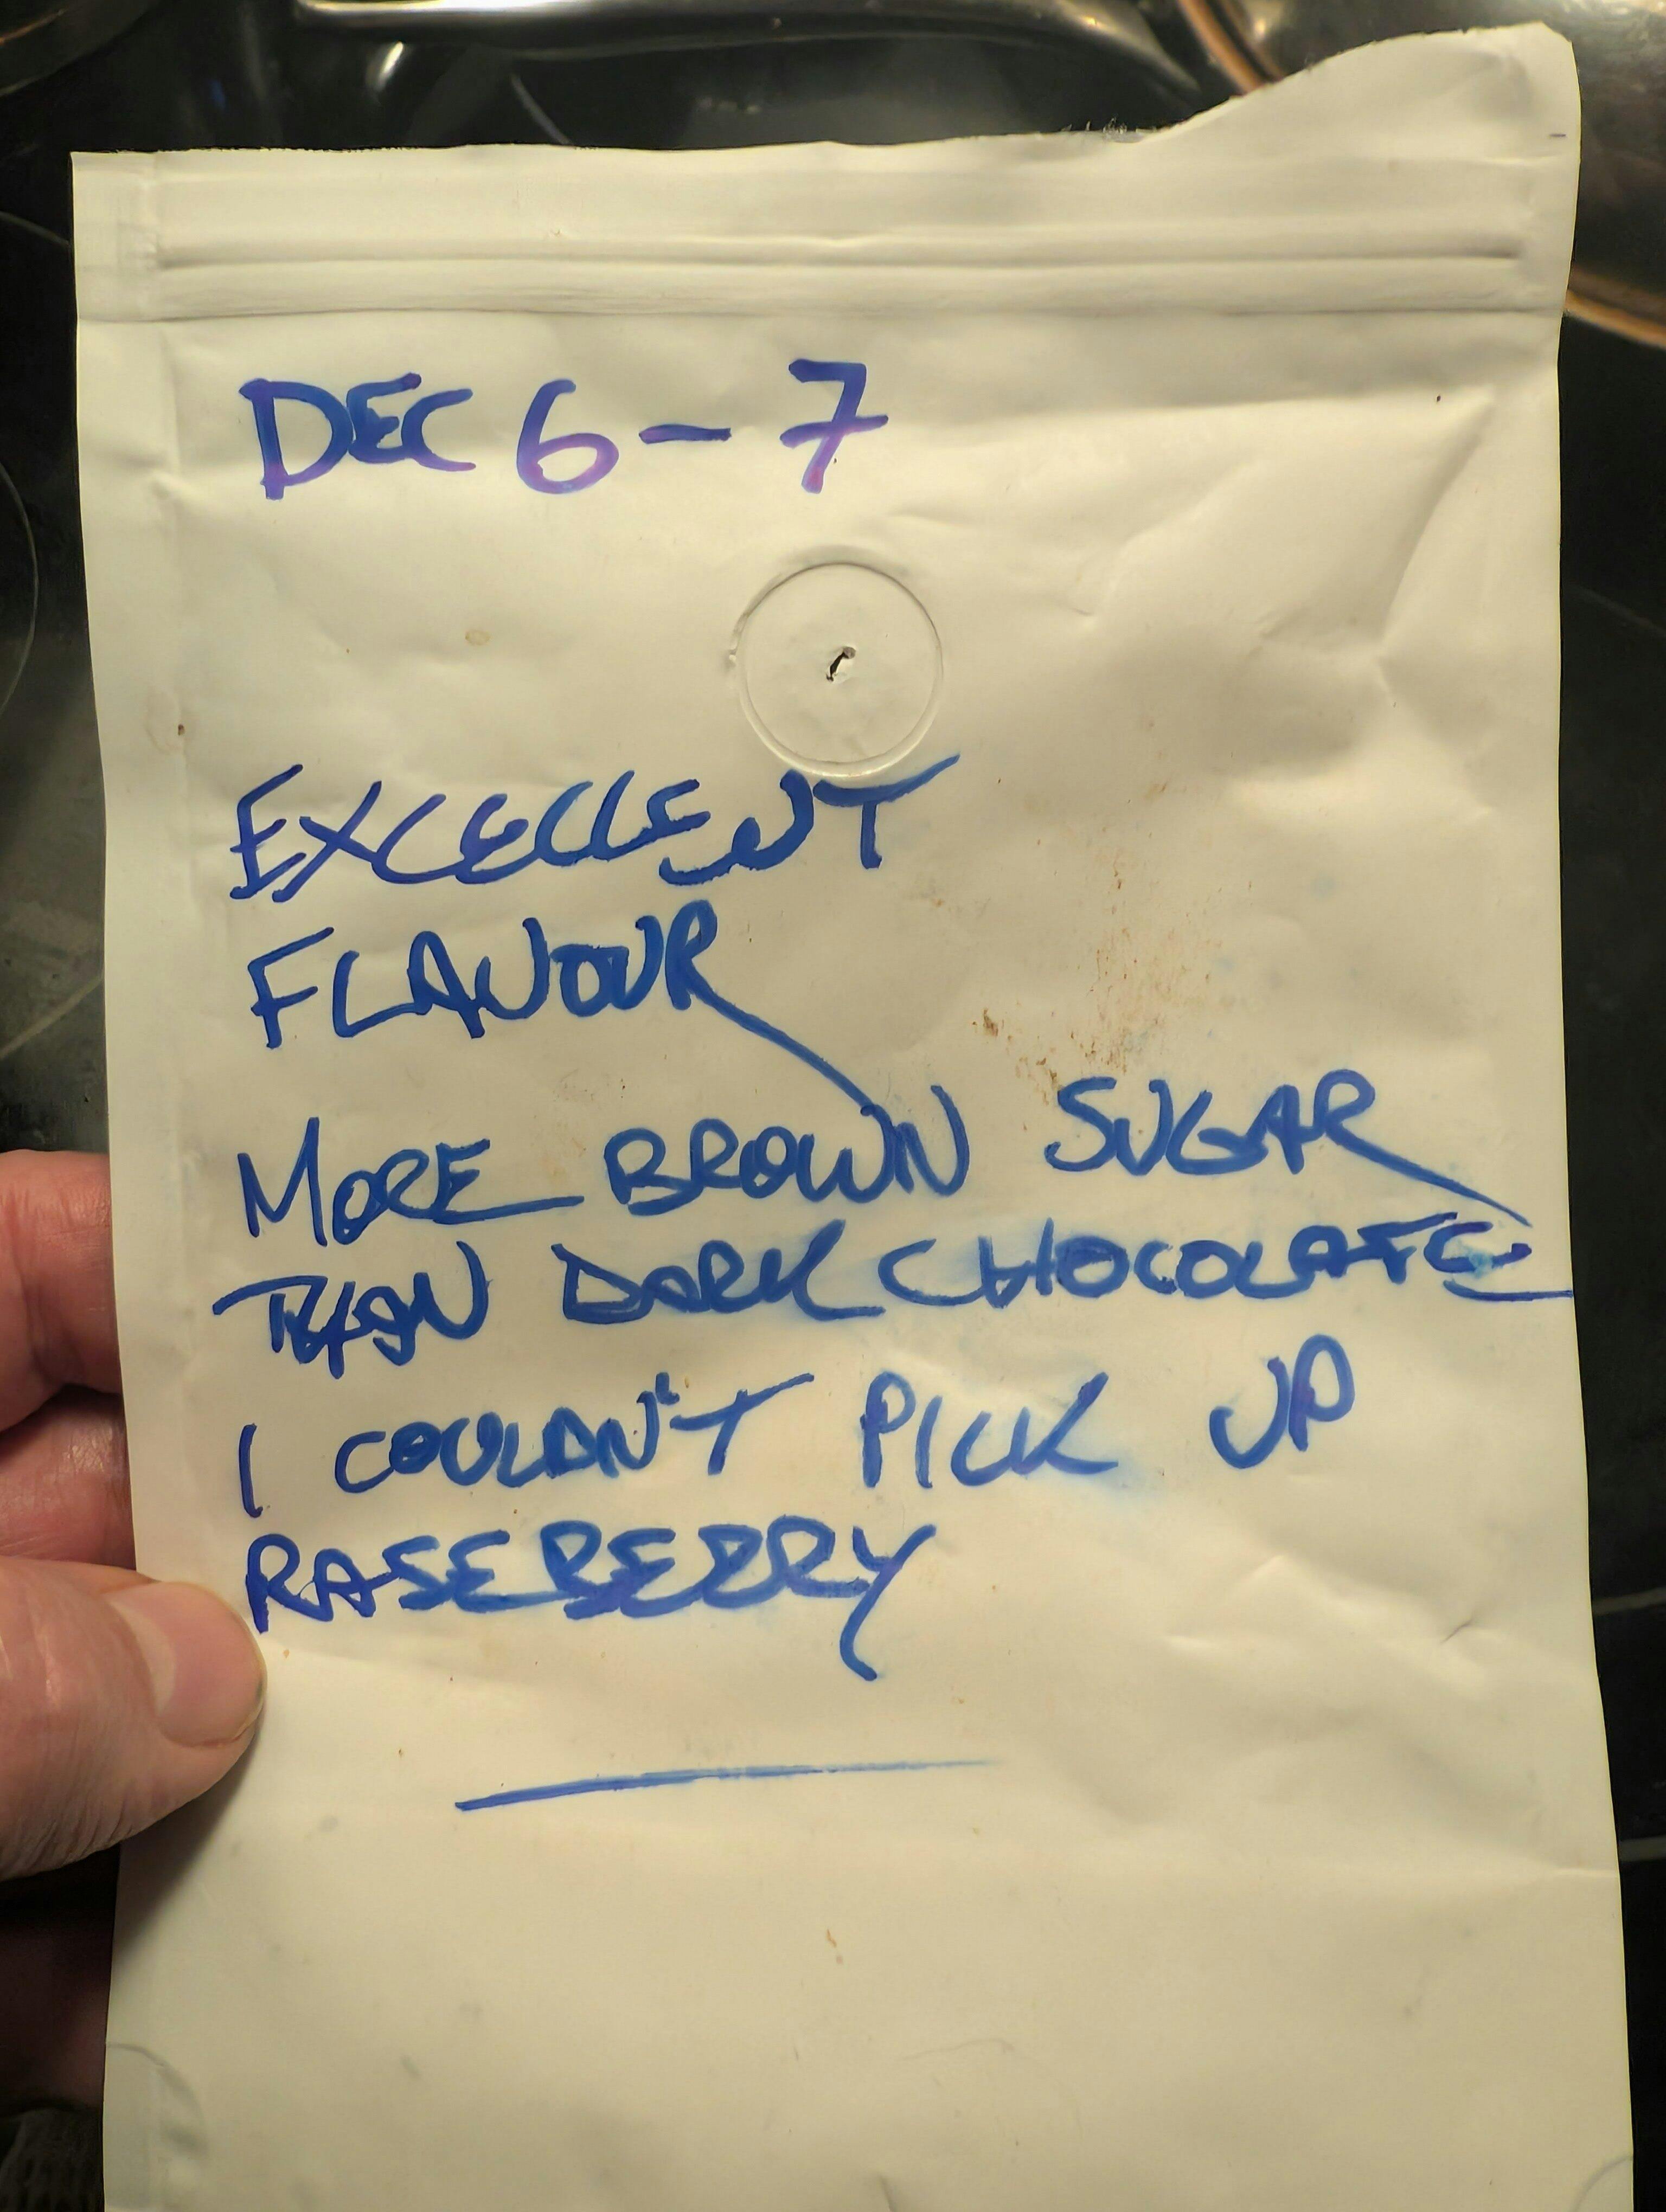 DEC 6-7
EXCELLENT
FLAVOUR
MORE BROWN SUGAR
THAN DARK CHOCOLATE
I COULDN'T PICK UP
RASEBERRY